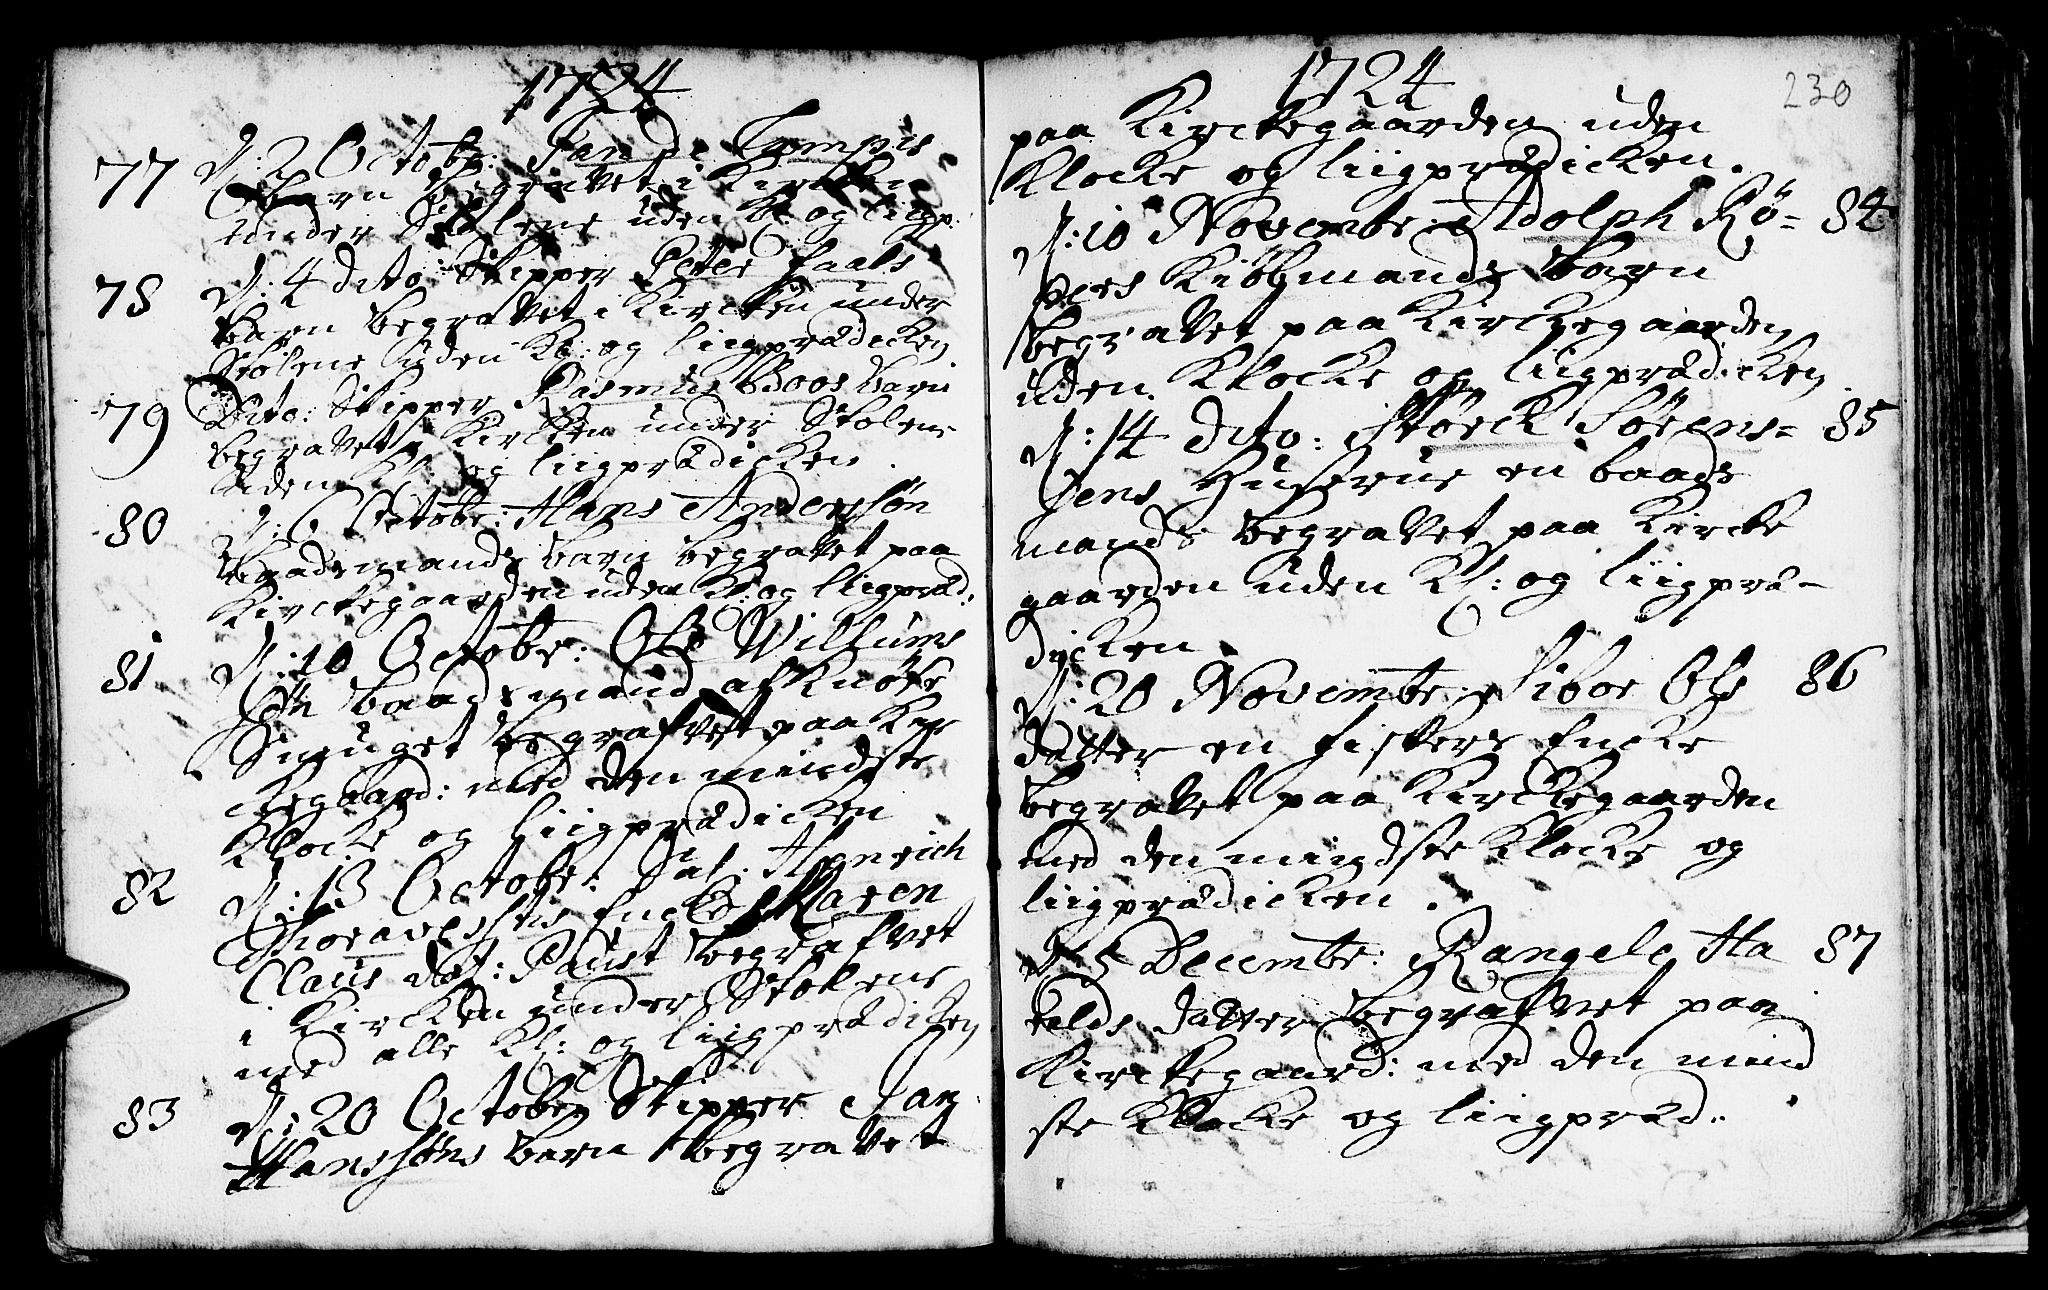 1724
77 D: 2 Octobr: Jan de Tempis
barn begravet i Kircken
under Stolene uden Kl: og liigp:
78 D: 4 dito: Skipper Peter Paals
barn begravet i Kircken under
Stolene uden Kl: og liigprædicken
79 Dito: Skipper Rasmus Boos barn
begravet i Kircken under Stolene
uden Kl: og liigprædicken.
80 D: 6 Octobr: Hans Anderssøn
baadsmands barn begravet paa
Kirckegaarden uden Kl: og liigpræd:
81 D: 10 Octobr: Ole Willums
søn baadsmand af
Smuget begrafvet paa Kir
ckegaard: med den mindste
Klocke og liigprædicken
82 D: 13 Octobr: Sal: Henrich
Encke Maren
Claus dat: Paust begrafvet
i Kircken under Stolene
med alle Kl: og liigprædicken
83 D: 20 October Skipper Jan
Hanssøns barn begravet
1724
230
paa Kirckegaarden uden
Klocke og liigprædicken.
D: 10 Novembr: Adolph Rø= 84
pers Kiøbmands barn
begravet paa Kirckegaarden
uden Klocke og liigprædicken.
D: 14 dito: Støeck Sørens= 85
søns Hustrue en baads
mands begravet paa Kircke
gaarden uden Kl: og liigpræ-
dicken
D: 20 Novembr: Siboe Ols 86
datter en fiskers Encke
begravet paa Kirckegaarden
med den mindste Klocke og
liigprædicken.
D: 5 Decembr: Rangele Ha 87
kelds datter begrafvet paa
Kirckegaard: med den mind
ste Klocke og liigpræd: